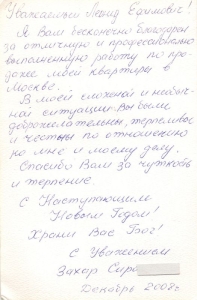 Уважаемый Леонид Ефимович!
Я Вам бесконечно благодарен
за отличную и профессионально
выполненную работу по про-
даже моей квартиры в
Москве.
В моей сложной и необыч-
ной ситуации Вы были
доброжелательны, терпеливы
и честны по отношению
ко мне и моему делу.
Спасибо Вам за чуткость
и терпение.
С Наступающим
Новым Годом!
Храни Вас Бог!
С Уважением
Захар Сиро
Декабрь 2007г.